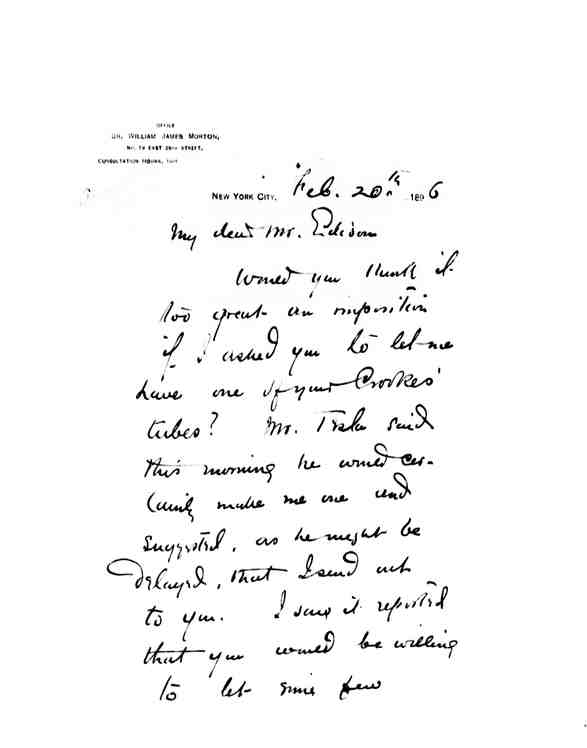 OFFICE
DR. WILLIAM JAMES MORTON,
EAST STREET,
CONSULTATION HOURS,
NEW YORK CITY, Feb. 20th 1896
My dear Mr. Edison
Would you think it
too great an imposition
if I asked you to let me
have one of your Crookes'
tubes? Mr. Tesla said
this morning he would cer-
tainly make me one and
suggested, as he might be
delayed, that I send
to you. I saw it reported
that you would be willing
to let some few